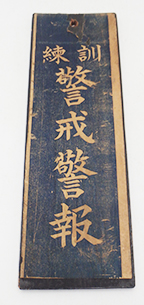 訓練
警戒警報